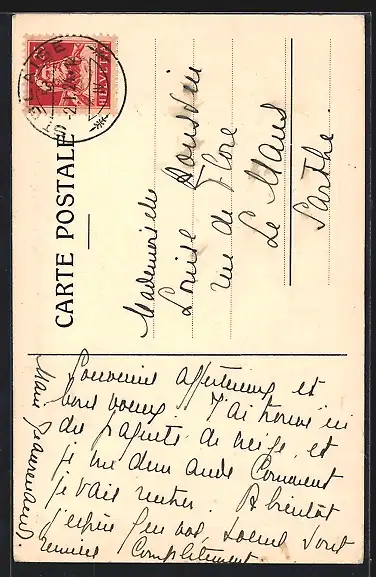 CARTE POSTALE
HELVETIA
Mademoiselle
Louise
rue de Flore
Le Mans
Sarthe.
Souvenirs affectueux et
bons voeux. J'ai trouvé ici
des paquets de neige, et
je me demande Comment
je vais rentrer. A bientôt
j'espère sont
remises Complètement.